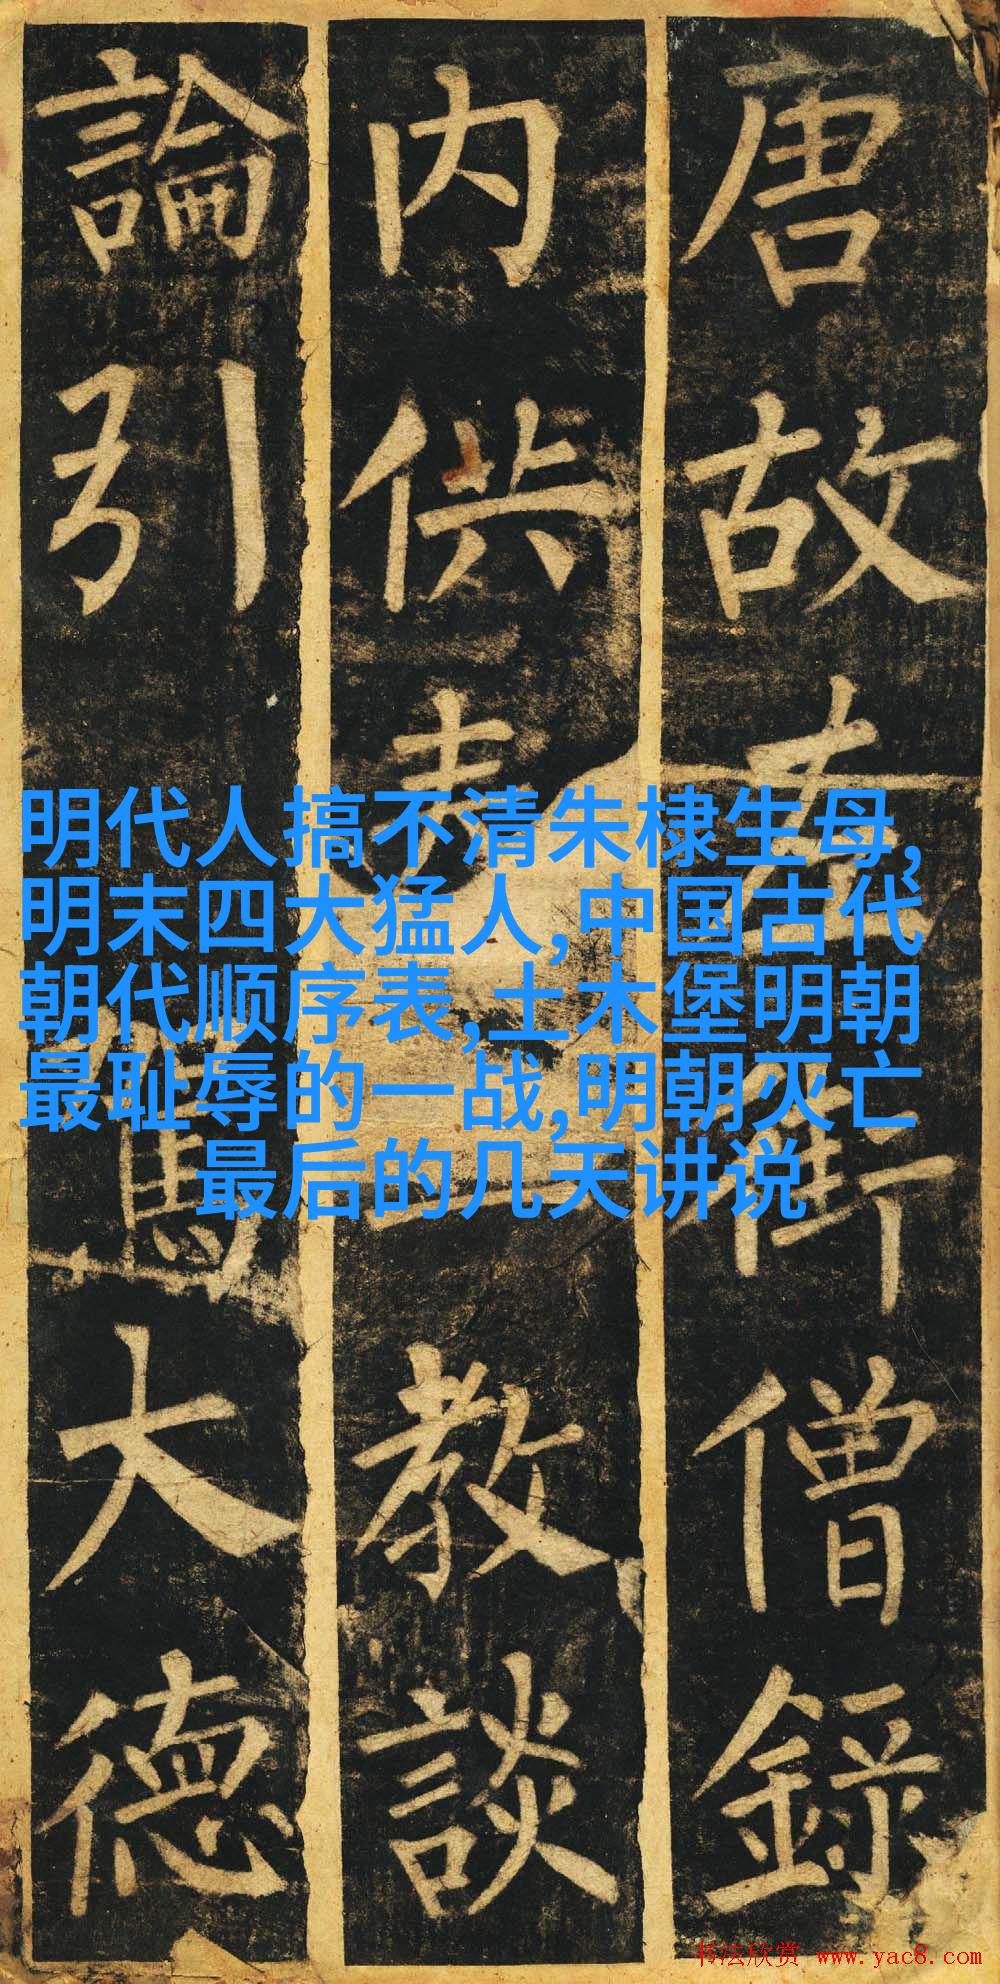 唐故左街僧錄
内供奉三教談
論引駕大德
明代人搞不清朱棣生母,
明末四大猛人,中国古代
朝代顺序表,土木堡明朝
最耻辱的一战,明朝灭亡
最后的几天讲说
书法欣赏 www.yac8.com